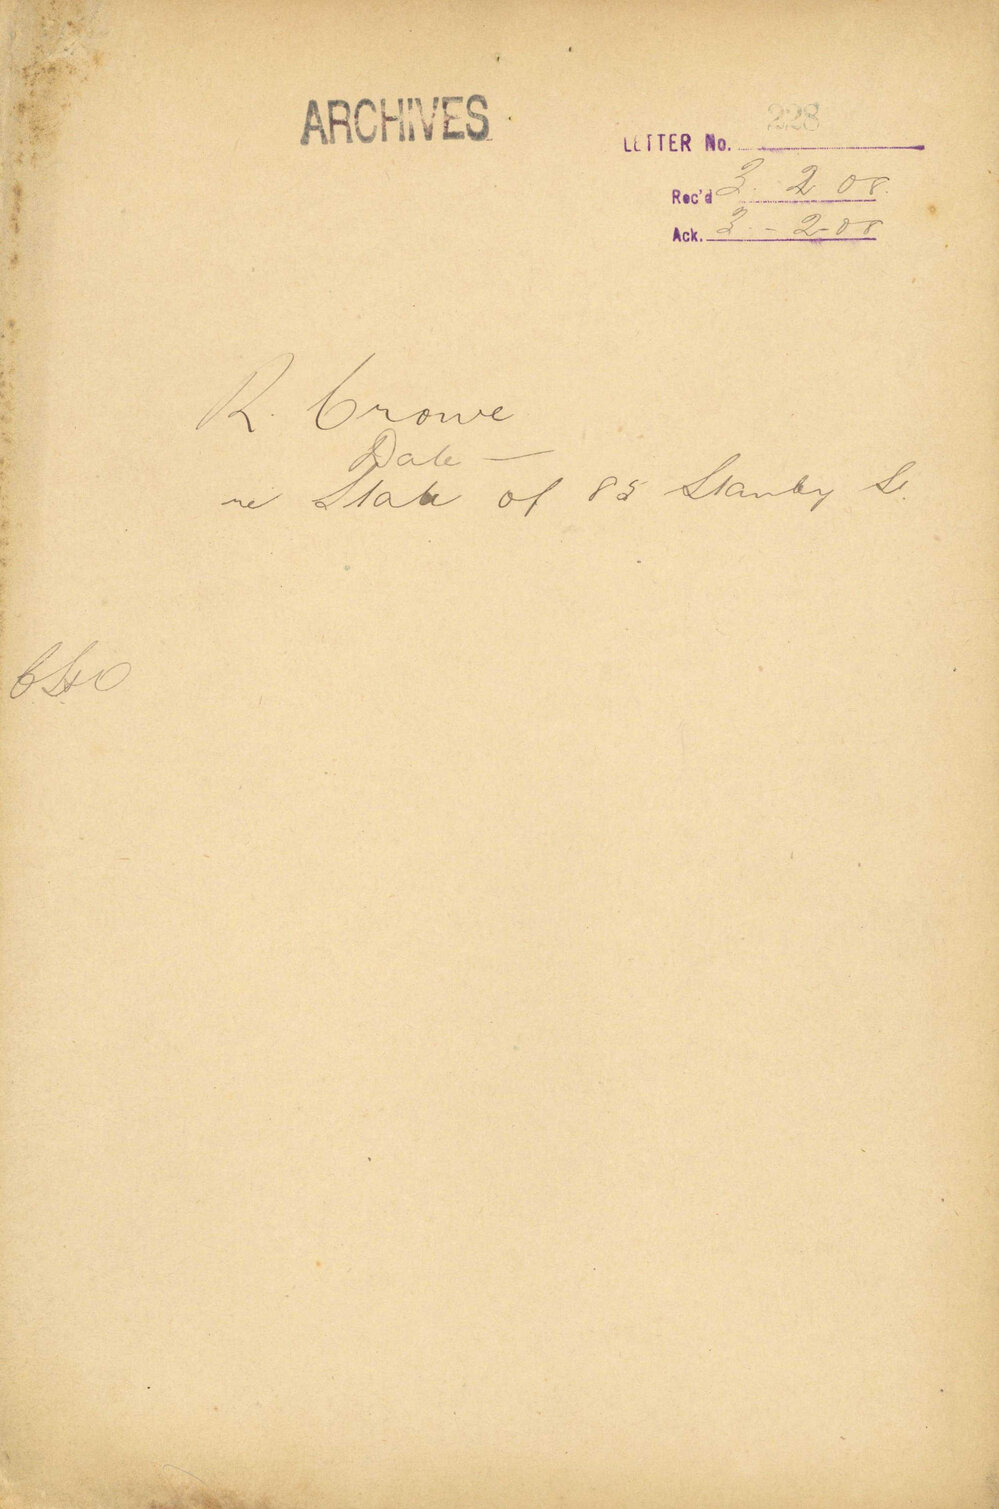 ARCHIVES
228
LETTER No.
Rec'd 3. 2 08.
Ack. 3 - 2-08
R. Crowe
Date —
re State of 85 Stanley St.